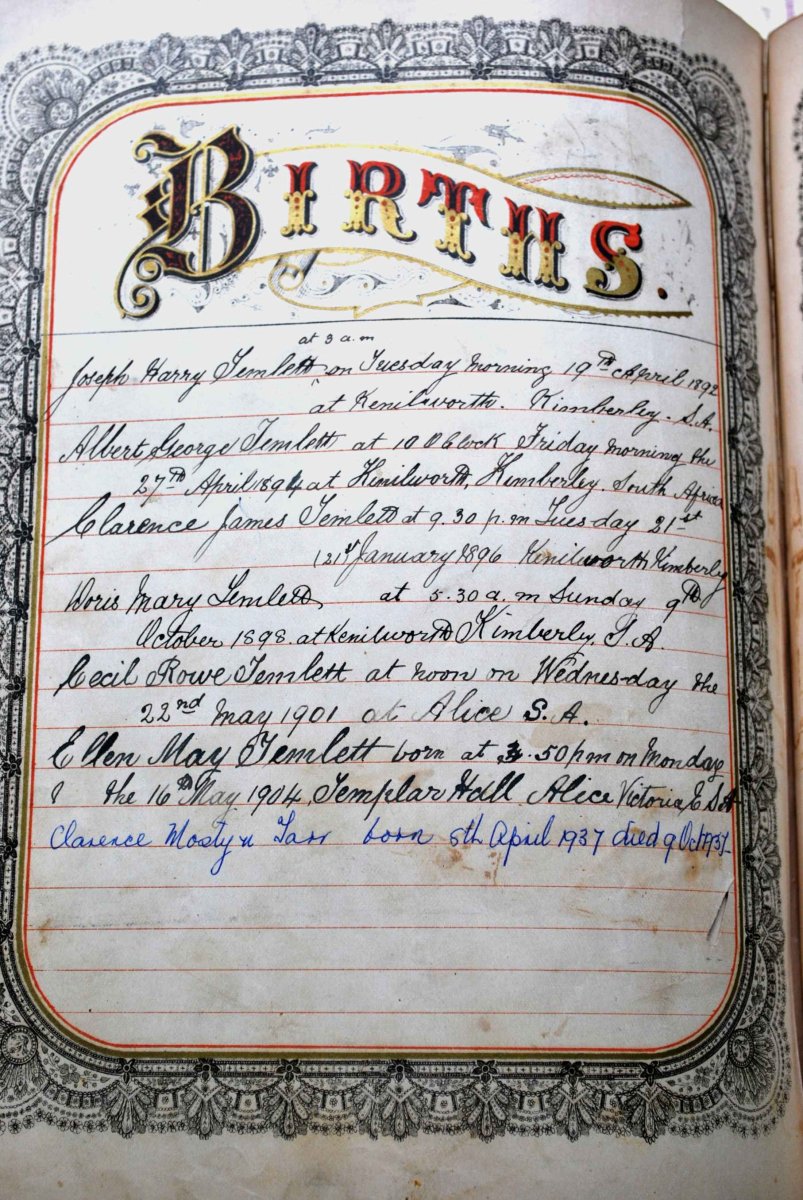 BIRTHS.
at 3 a.m
Joseph Harry Temlett on Tuesday morning 19th April 1892
at Kenilworth. Kimberley. S.A.
Albert George Temlett at 10 O Clock Friday morning the
27th April 1894 at Kenilworth, Kimberley. South Africa
Clarence James Temlett at 9.30 p.m Tuesday 21st
(21st January 1896 Kenilworth Kimberley
Doris Mary Temlett, at 5.30 a.m Sunday 9th
October 1898. at Kenilworth Kimberley. S.A.
Cecil Rowe Temlett at noon on Wednesday the
22nd May 1901 at Alice S.A.
Ellen May Temlett born at .50 pm on Monday
the 16th May 1904, Templar Hall Alice Victoria E S.A
Clarence Mostyn Tarr born 8th April 1937 died 9 Oct 1937